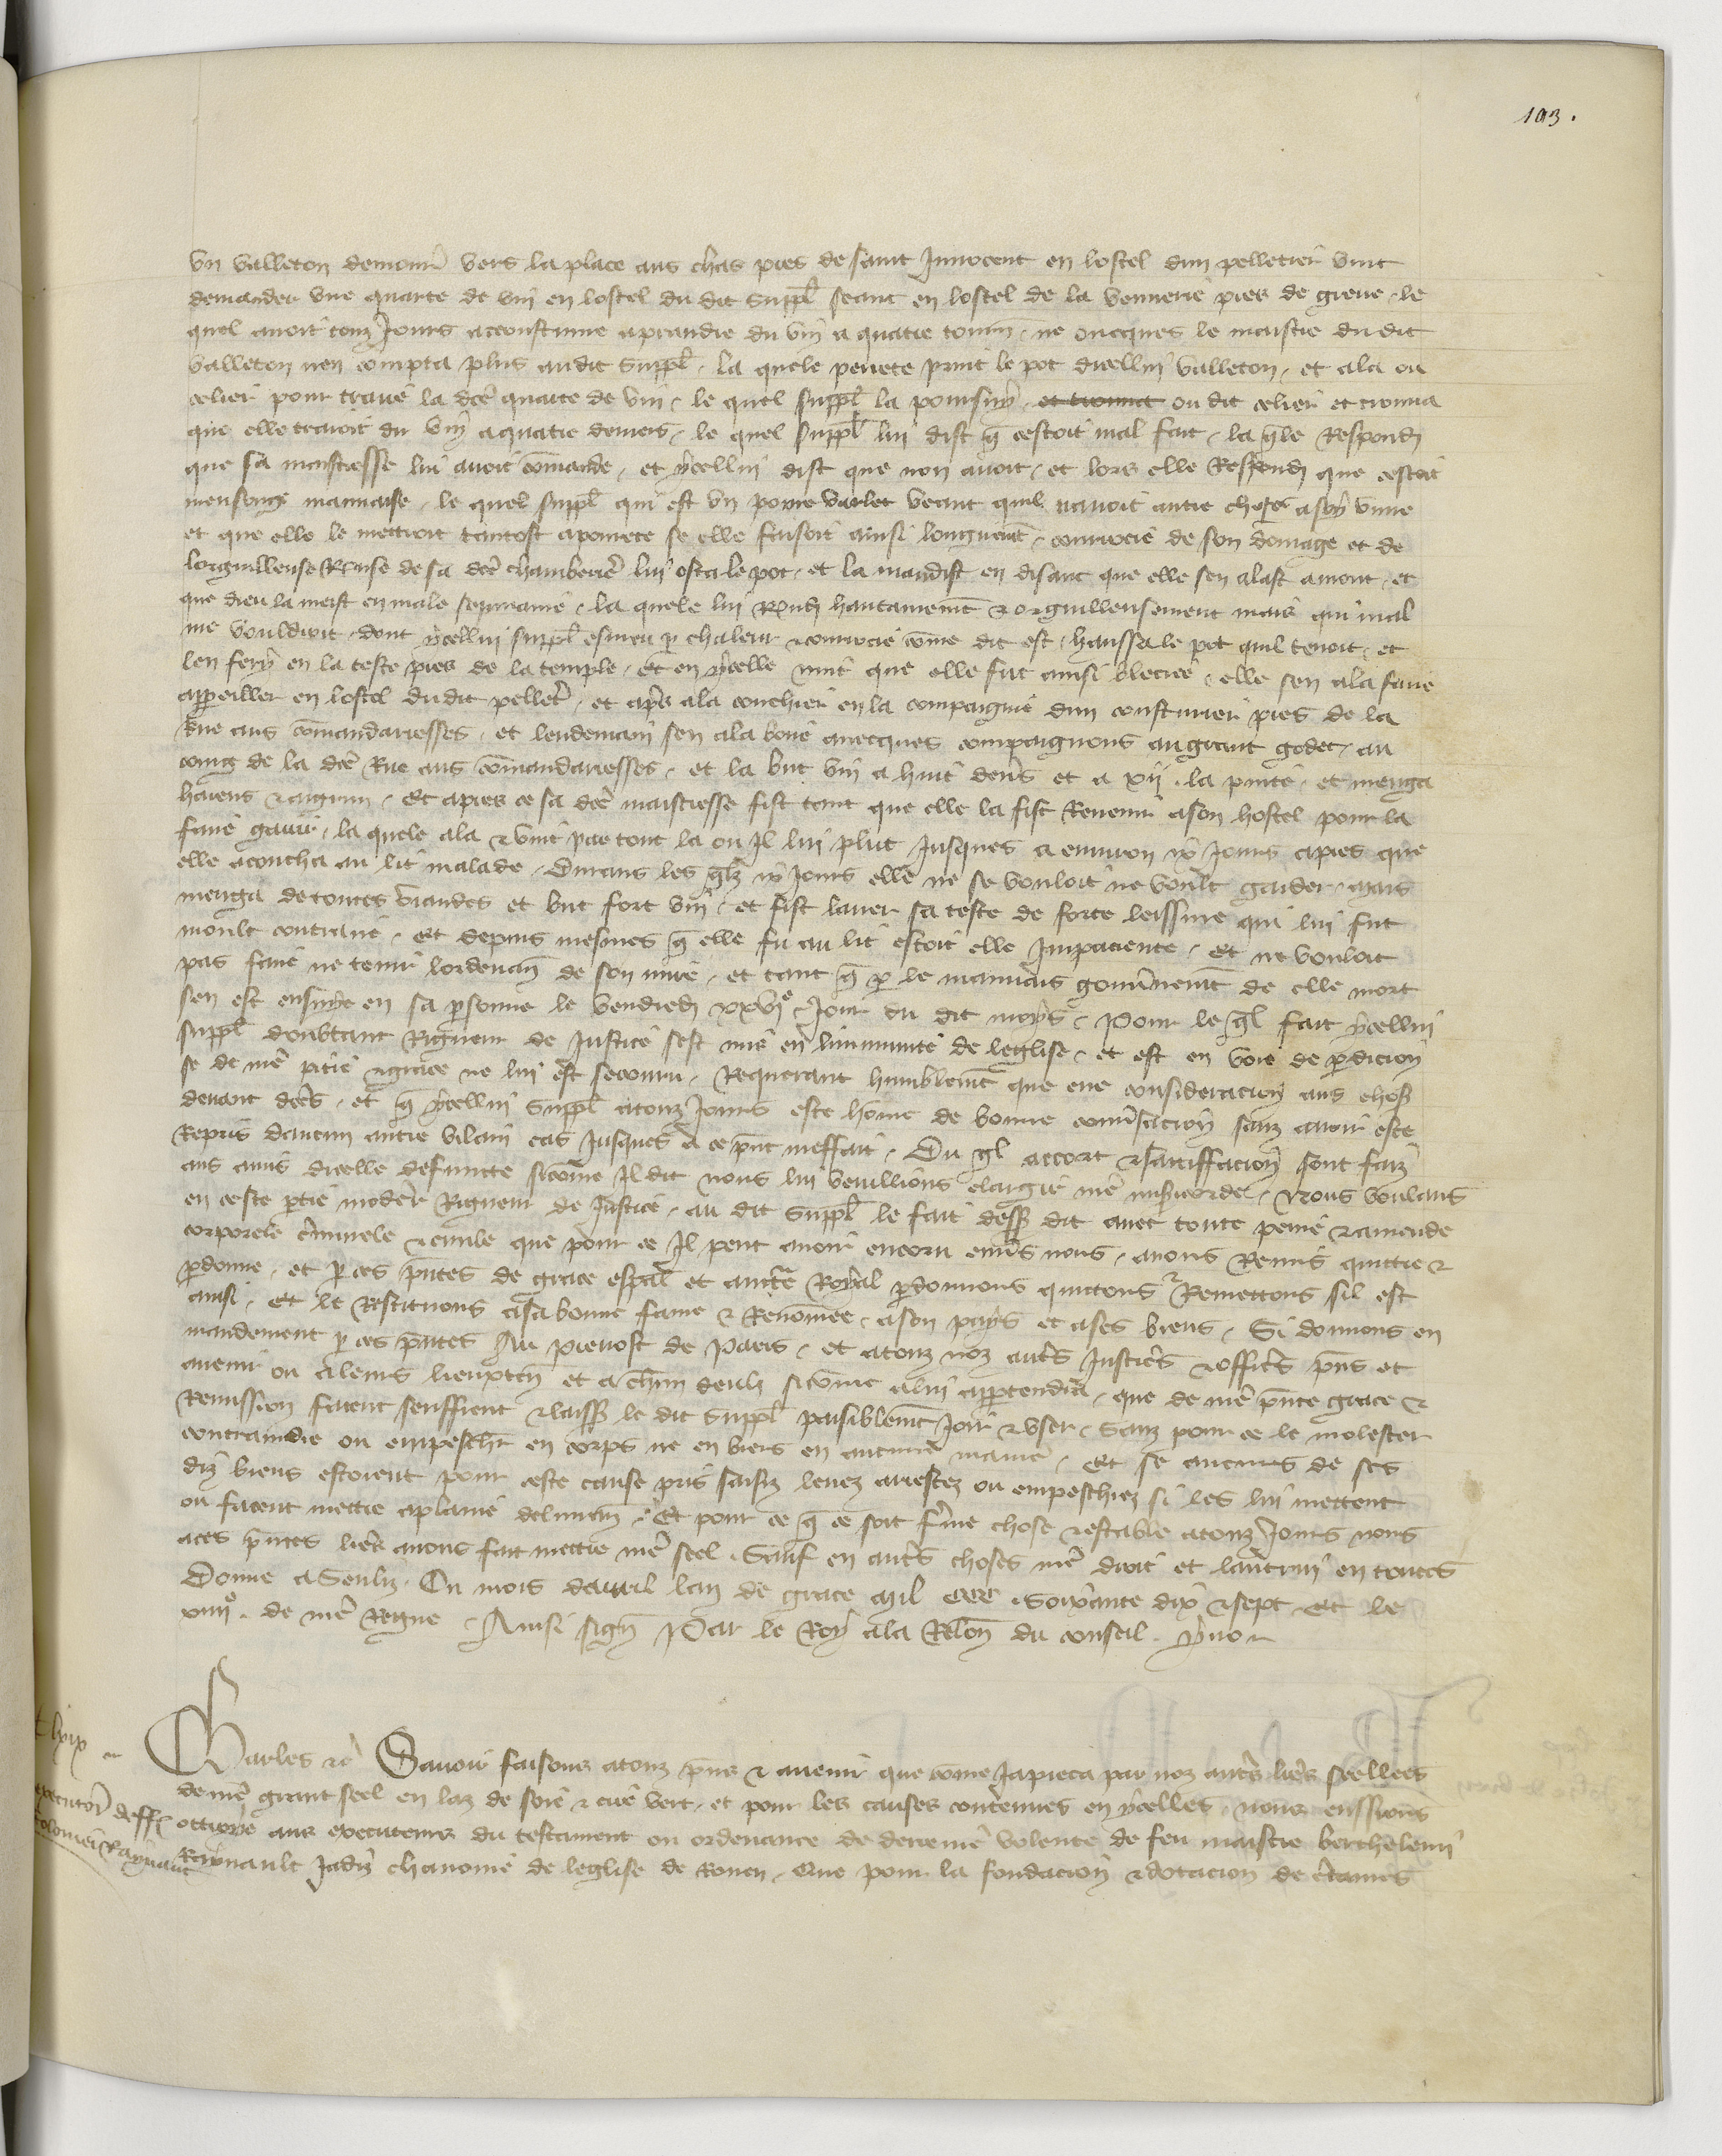 193.
un valleton demour vers la place aus chas pres de saint Innocent en lostel dun pelletier vint
demander une quarte de vin en lostel du dit suppl seant en lostel de la vennerie pres de greve, le
quel avoit touz jours acoustume aprandre du vin a quatre tourn, ne oncques le maistre du dit
valleton nen compta plus audit suppl, la quele perrete print le pot dicellui valleton, et ala ou
celier pour traire la dce quarte de vin, le quel suppl la poursuy et trouva ou dit celier et trouva
que elle traioit du vin a quatre deniers, le quel suppl lui dist q cestoit mal fait, la qle respondi
que sa maistresse lui avoit comande, et ycellui dist que non avoit, et lors elle respondi que cestoit
mensonge mauvaise, le quel suppl qui est un povre varlet veant quil navoit autre chose a soy vivre
et que elle le mettroit tantost a povrete se elle faisoit ainsi longuemt, courrocie de son domage et de
lorguilleuse response de sa dce chamberiere lui osta le pot, et la maudist en disant que elle sen alast amont, et
que dieu la meist en male sepmaine, la quele lui rpondi hautainemt & orguilleusement mais qui mal
me vouldroit, dont ycellui suppl esmeu p chaleur & courrocie come dit est, haussa le pot quil tenoit, et
len fery en la teste pres de la temple, Et en ycelle nuit que elle fut ainsi bleciee, elle sen ala faire
appeiller en lostel du dit pelletier, et aprs ala couchier en la compaignie dun cousturier pres de la
rue aus comandaresses, et lendemain sen ala boire avecques compaignons au grant godet, au
coing de la dce rue aus comandaresses, et la but vin a huit dens et a xii la pinte, et menga
harens & aigrun, Et apres ce sa dce maistresse fist tant que elle la fist revenir a son hostel pour la
faire garir, la quele ala & vint par tout la ou il lui plut jusques a environ ix jours apres que
elle acoucha au lit malade, Durans les qlz ix jours elle ne se vouloit ne voult garder, mais
menga de toutes viandes et but fort vin, et fist laver sa teste de forte leissive qui lui fut
moult contraire, Et depuis mesmes q elle fu au lit estoit elle impaciente, Et ne vouloit
pas faire ne tenir lordenan de son mire, et tant q p le mauvais gouvnemt de elle mort
sen est ensuye en sa psonne le vendredi xxvi e jour du dit moys, Pour le ql fait ycellui
suppl doubtant rigueur de justice sest mis en limmunite de leglise, et est en voie de pdicion
se de nre pitie & grace ne lui est secouru, Requerant humblemt que eue consideracion aus choses
devant dces, et q ycellui suppl a touz jours este home de bonne conversacion sanz avoir este
repris daucun autre vilain cas jusques a ce pnt meffait, Du ql accort & satiffacion sont faiz
aus amis dicelle defuncte sicome il dit nous lui vuillions elargir nre misericorde, Nous voulans
en ceste ptie moderer rigueur de justice, au dit suppl le fait dessus dit avec toute peine & amende
corporele criminele & civile que pour ce il peut avoir encoru envers nous, avons remis quittie &
pdonne, et p ces pntes de grace espal et auctte royal pdonnons quittons & remettons sil est
ainsi, Et le restituons a sa bonne fame & renomee, a son pays et a ses biens, Si donnons en
mandement p ces pntes Au prevost de Paris, et a touz noz autrs justiciers & officiers pns et
avenir ou a leurs lieuxten et a chun deulz sicome a lui appartendra, que de nre pnte grace &
remission facent seuffrent & laissent le dit suppl paisiblemt joir & user, Sanz pour ce le molester
contraindre ou empeschier en corps ne en biens en aucune maniere, Et se aucuns de ses
diz biens estoient pour ceste cause pris saisiz levez arrestez ou empeschiez si les lui mettent
ou facent mettre a plaine delivran, Et pour ce q ce soit ferme chose & estable a touz jours nous
a ces pntes lettres avons fait mettre nre seel, Sauf en autrs choses nre droit et lautrui en toutes
Donne a Senliz, Ou mois davril lan de grace mil ccc, Soixante dix & sept, Et le
xiiii e. de nre Regne, Ainsi sign Par le Roy a la relon du conseil. Yvo

Charles &c Savoir faisons a touz pns & avenir que come japieca par noz autrs lettres seellees
de nre grant seel en laz de soie & cire vert, et pour les causes contenues en ycelles, nous eussions
ottroye aus executeurs du testament ou ordenance de derreniere volente de feu maistre berthelemi
Reynault jadiz chanoine de leglise de Rouen, Que pour la fondacion & dotacion de ctaines